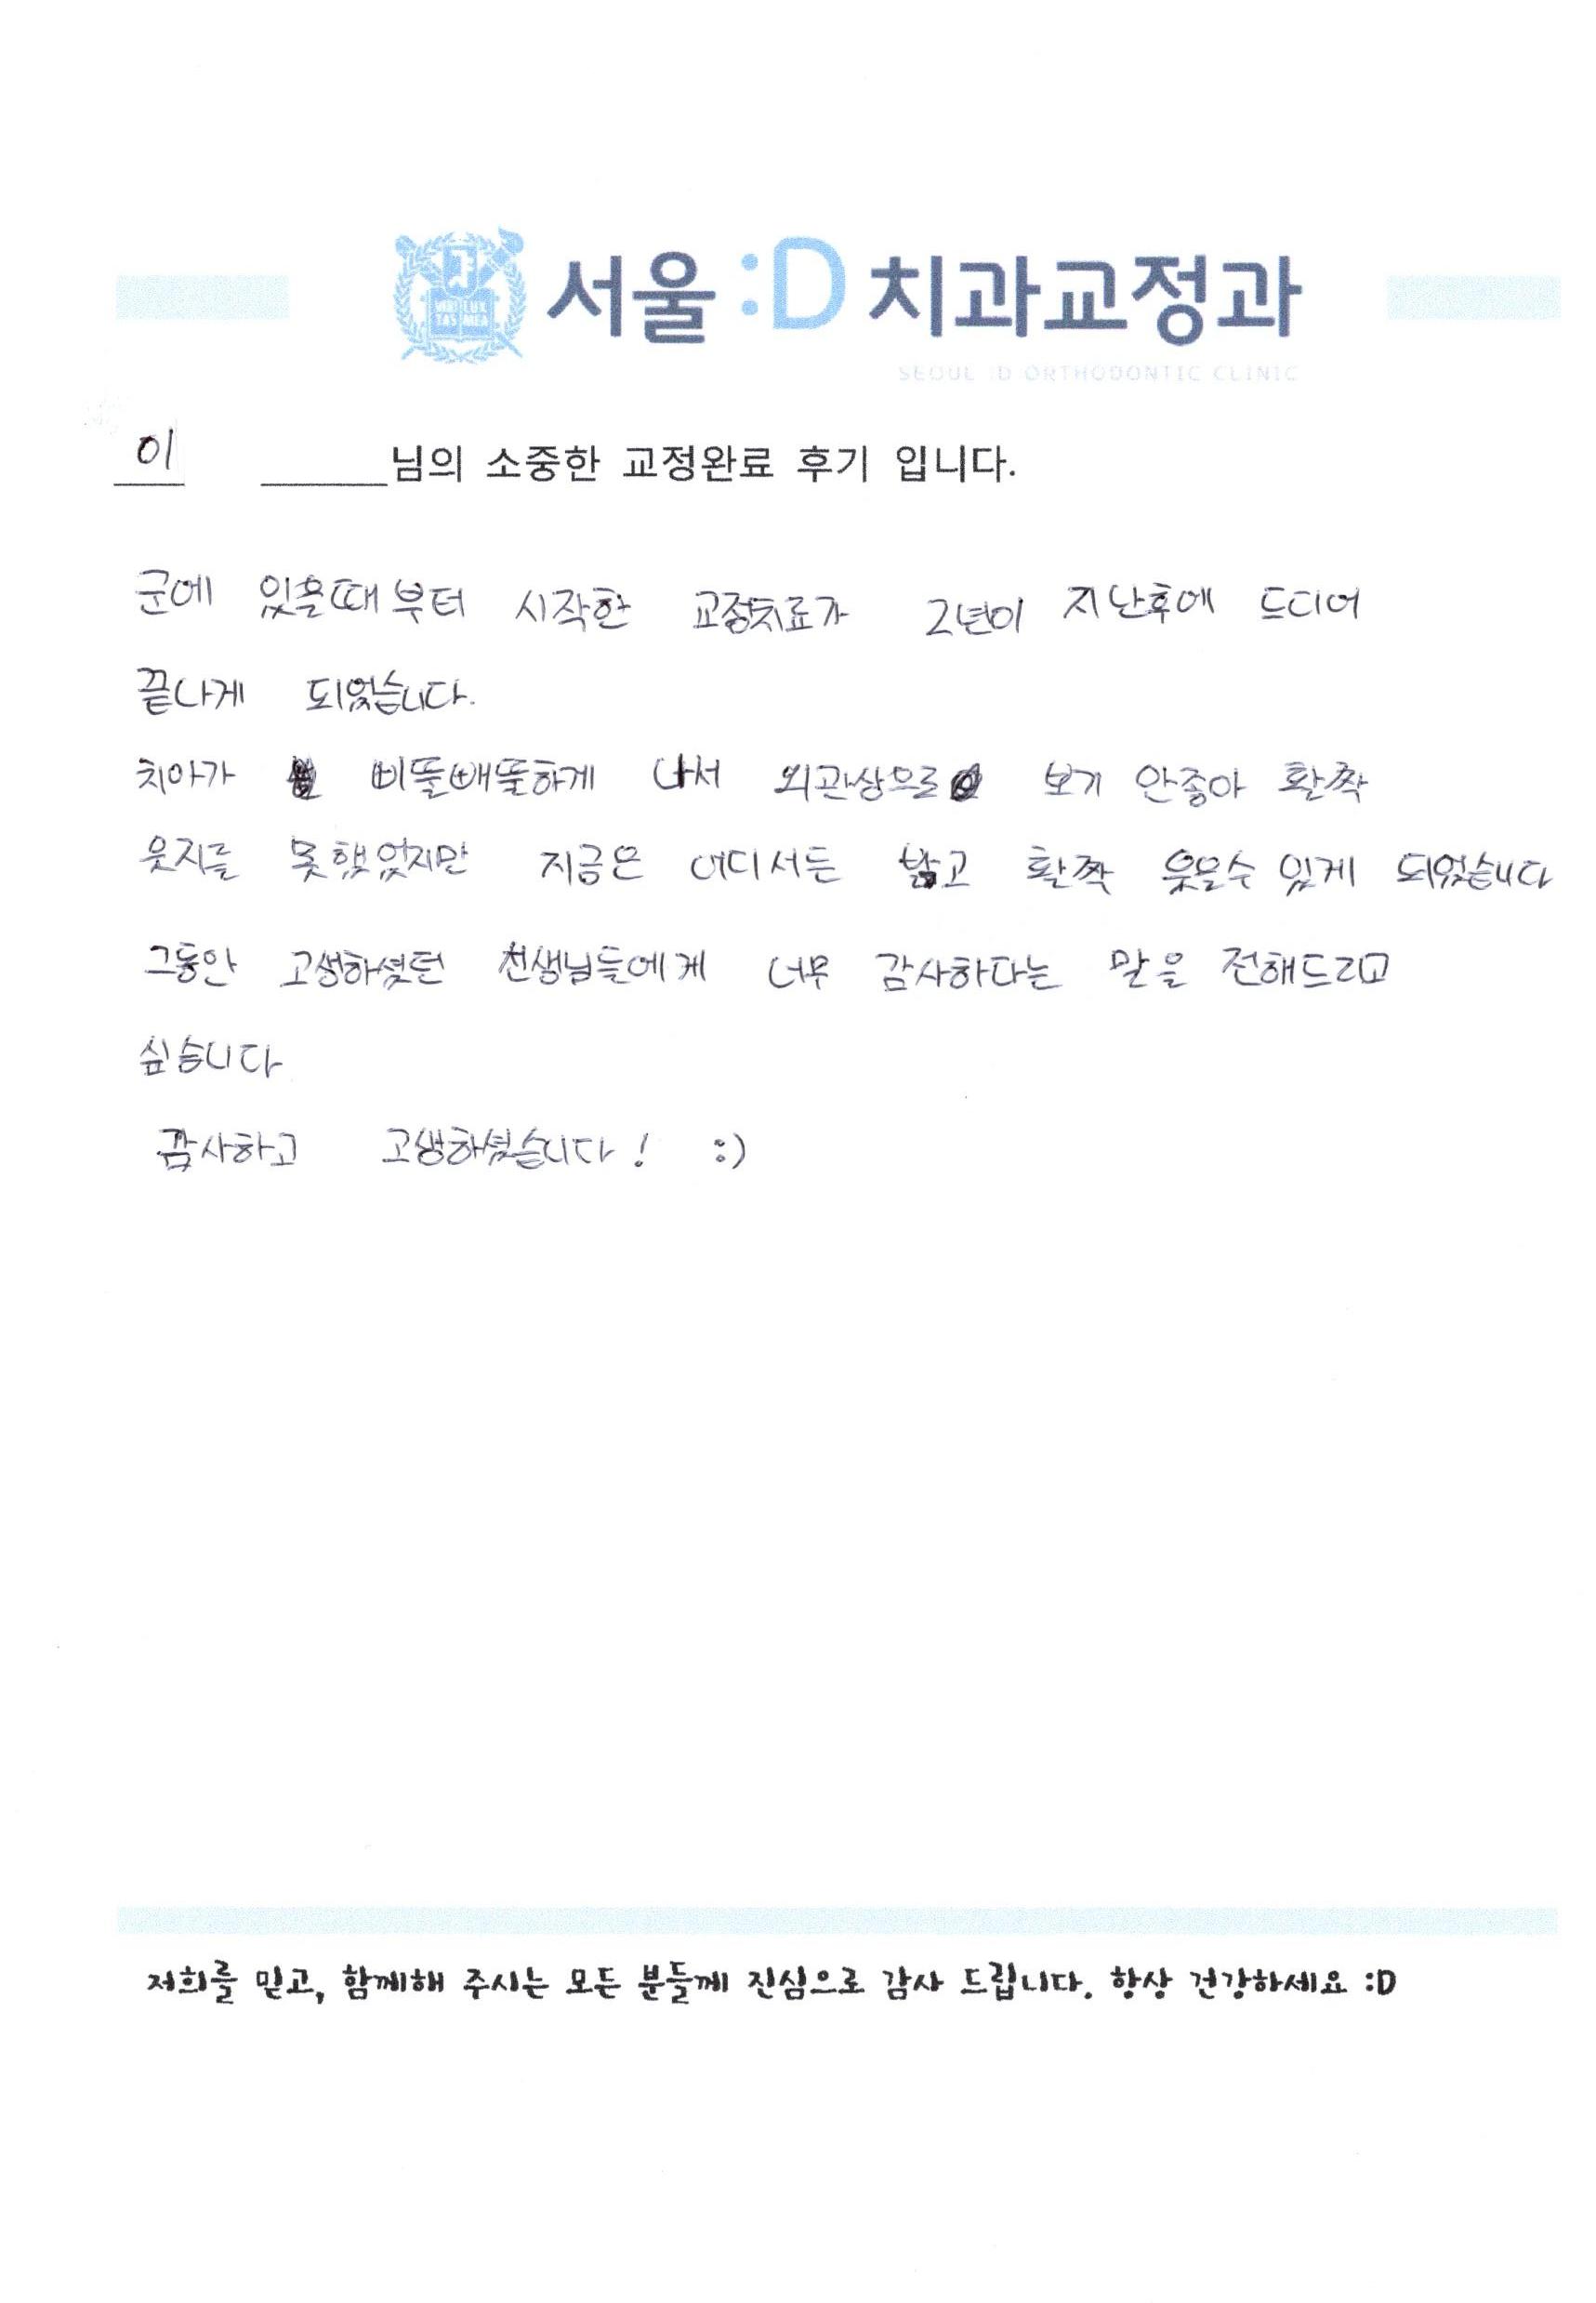 서울 :D 치과교정과
SEOUL :D ORTHODONTIC CLINIC
이 님의 소중한 교정완료 후기 입니다.
군에 있을때부터 시작한 교정치료가 2년이 지난후에 드디어
끝나게 되었습니다.
치아가 삐뚤빼뚤하게 나서 외관상으로 보기 안좋아 활짝
웃지를 못했었지만 지금은 어디서든 밝고 활짝 웃을수 있게 되었습니다
그동안 고생하셨던 선생님들에게 너무 감사하다는 말을 전해드리고
싶습니다
감사하고 고생하셨습니다! :)
저희를 믿고, 함께해 주시는 모든 분들께 진심으로 감사 드립니다. 항상 건강하세요 :D